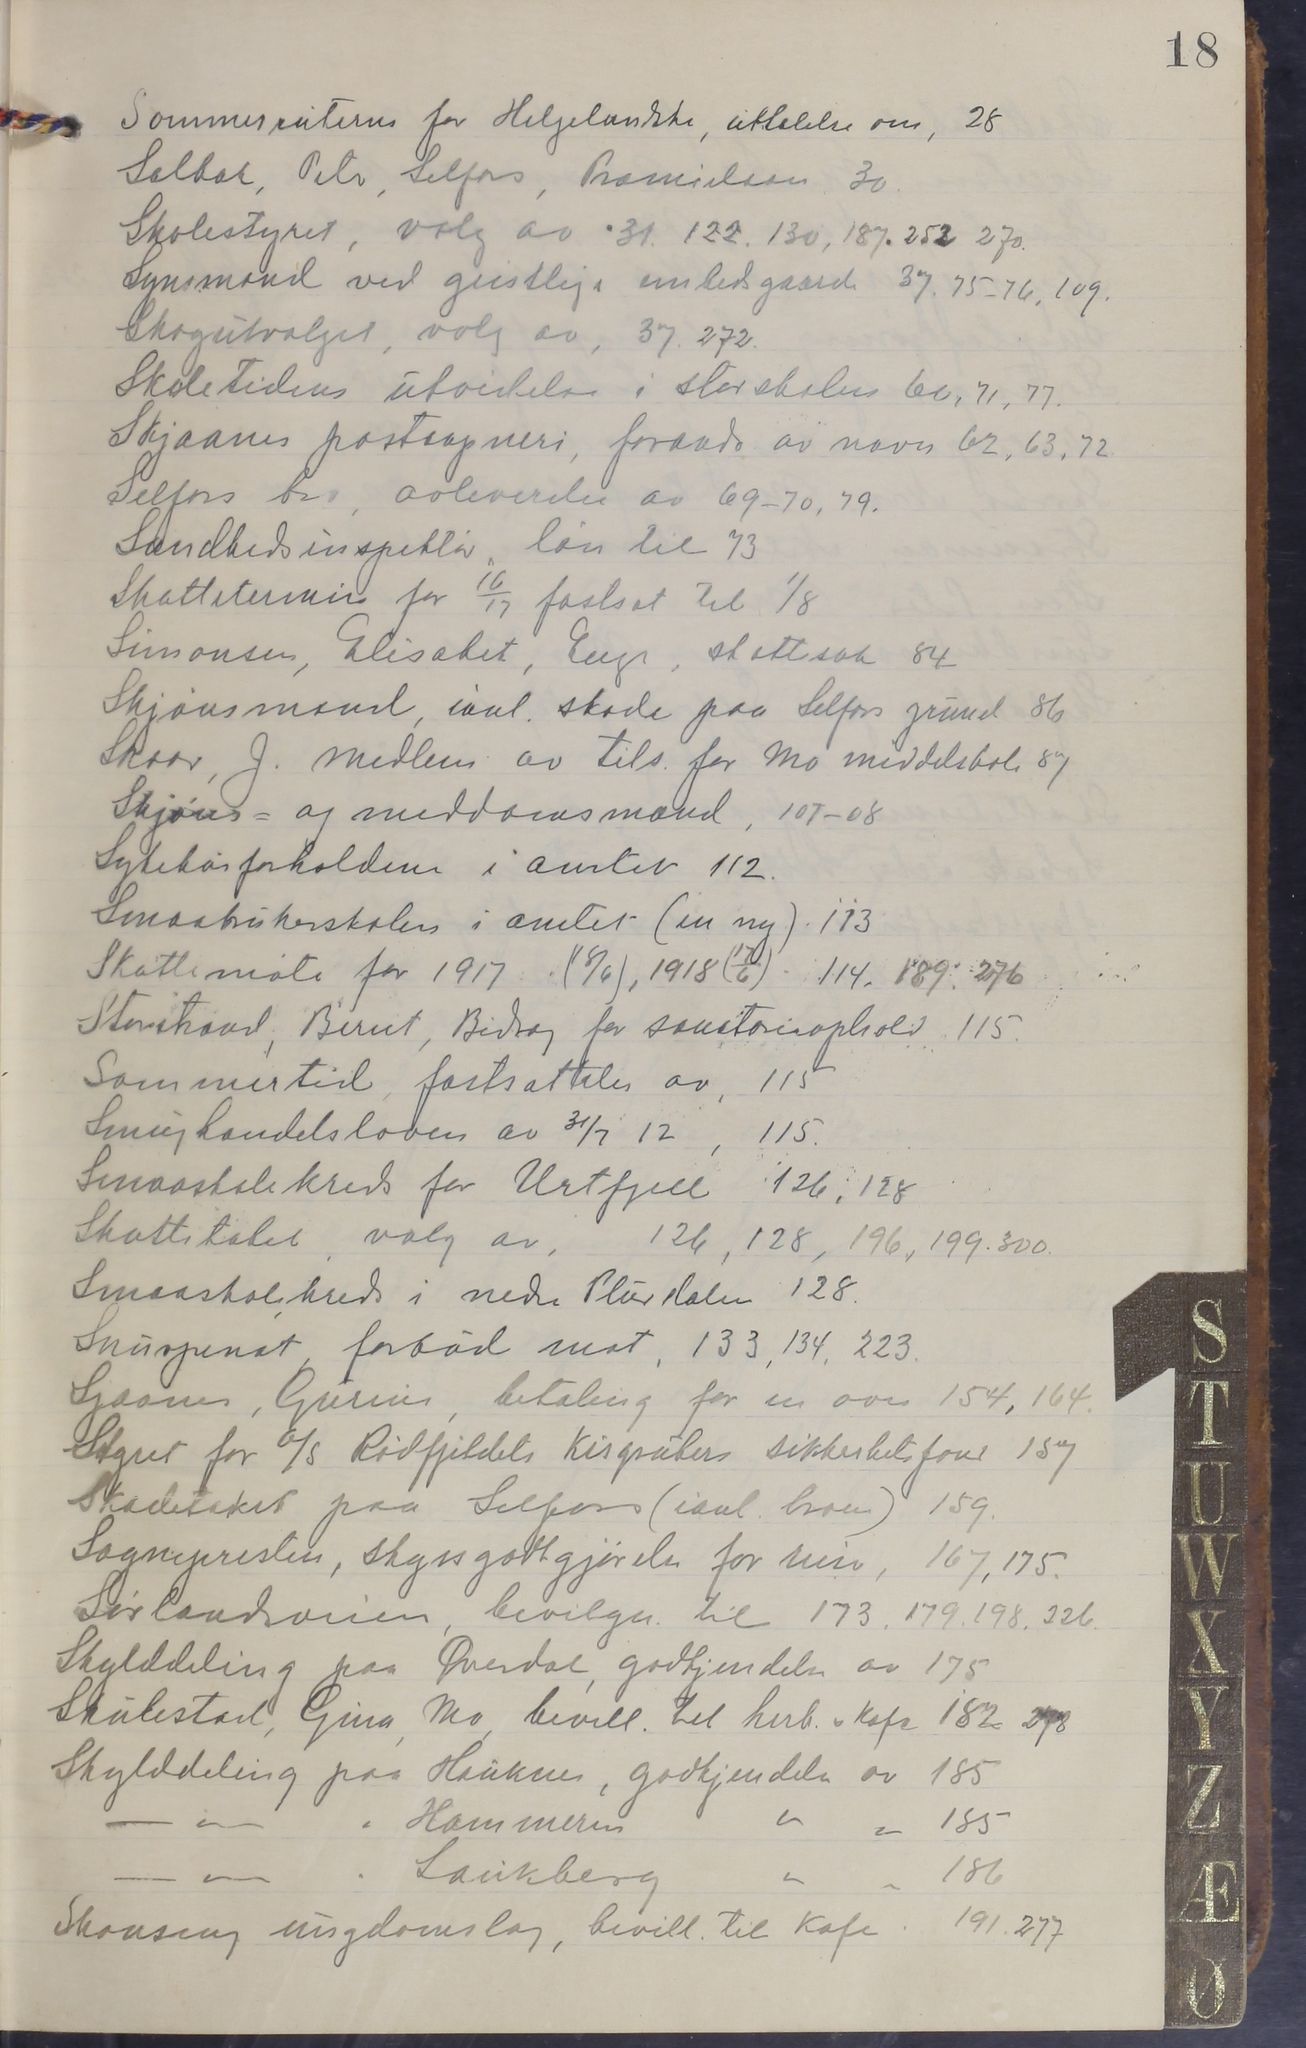 18
Sommerruterne for Helgelandske, uttalelse om, 28
Solbak, Petr, Selfors, 30.
Skolestyret, valg av 31. 122. 130, 187. 252 270.
Synsmænd ved geistlige embedsgaarde 37. 75-76, 109.
Skogutvalget, valg av, 37. 272.
Skoletidens utvidelse i storskolen 60, 71, 77.
Skjaanes postaapneri, forandr av navn 62, 63, 72
Selfors bro, avleverelse av 69-70, 79.
Sundhedsinspektör, lön til 73
Skattetermin for 16/17 fastsat til 1/8
Simonsen, Elisabet, Enge, skattesak 84
Skjönsmænd, ianl. skade paa Selfors grund 86
Skaar, J. medlem av tils. for Mo middelskole 87
Skjöns= og meddomsmænd, 107-08
Sykehusforholdene i amtet 112.
Smaabrukerskolen i amtet (en ny) 113
Skattemöte for 1917 (18/6), 1918 (17/6) 114. 189. 276
Storstrand, Berut, Bidrag for sanatorieophold 115.
Sommertid, fastsættelse av, 115
Smughandelsloven av 31/7 12, 115.
Smaaskolekreds for Urtfjell 126, 128
Skattetakst, valg av, 126, 128, 196, 199. 300.
Smaaskolekreds i nedre Plurdalen 128.
Snuspenat, forbud mot, 133, 134, 223.
Sjaanes, Gurine, betaling for en ovn 154, 164.
Styret for A/S Rödfjeldets Kisgrubers sikkerhetsfond 157
Skadetakst paa Selfors (ianl. broen) 159.
Sognepresten, skyssgodtgjörelse for reise, 167, 175.
Sörlandsveien, bevilgn. til 173. 179. 198. 226.
Skylddeling paa Överdal, godkjendelse av 175
Skulestad, Gina, Mo, bevill. til herb. o kafe 182 278
Skylddeling paa Hauknes, godkjendelse av 185
— " — " Hammeren " " 185
— " — " Laukberg " " 186
Skonseng ungdomslag, bevill. til kafe 191. 277
S
T
U
W
X
Y
Z
Æ
Ø